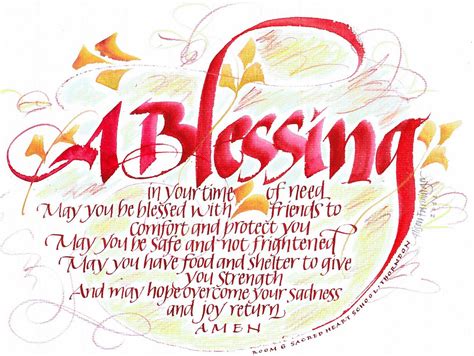 A Blessing
in your time of need
May you be blessed with friends to
comfort and protect you
May you be safe and not frightened
May you have food and shelter to give
you strength
And may hope overcome your sadness
and joy return
AMEN
ROOM 6 SACRED HEART SCHOOL, THORNDON